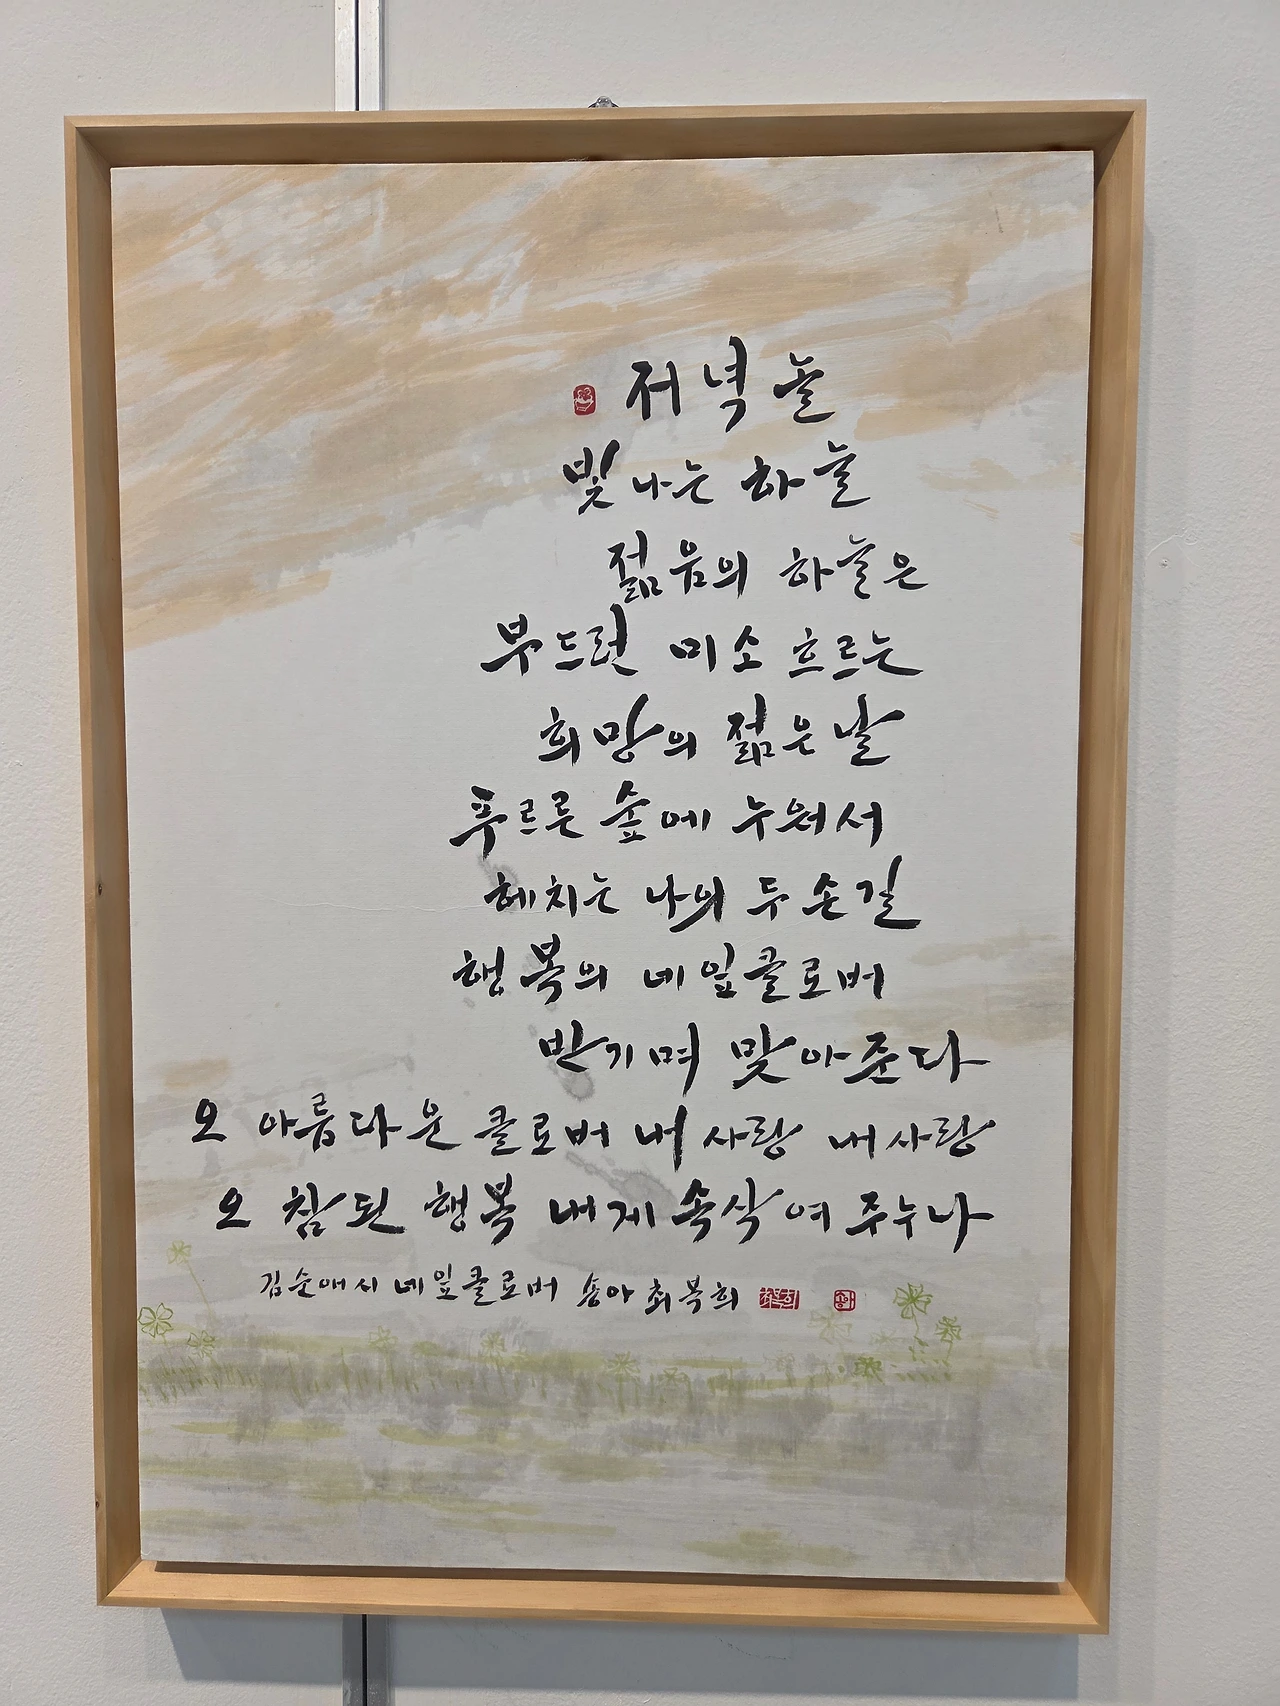 저녁놀
빛나는 하늘
젊음의 하늘은
부드런 미소 흐르는
희망의 젊은 날
푸르른 숲에 누워서
헤치는 나의 두 손길
행복의 네잎클로버
반기며 맞아준다
오 아름다운 클로버 내 사랑 내 사랑
오 참된 행복 내게 속삭여 주누나
김순애 시 네잎클로버 송아 최복희
최복희 송아